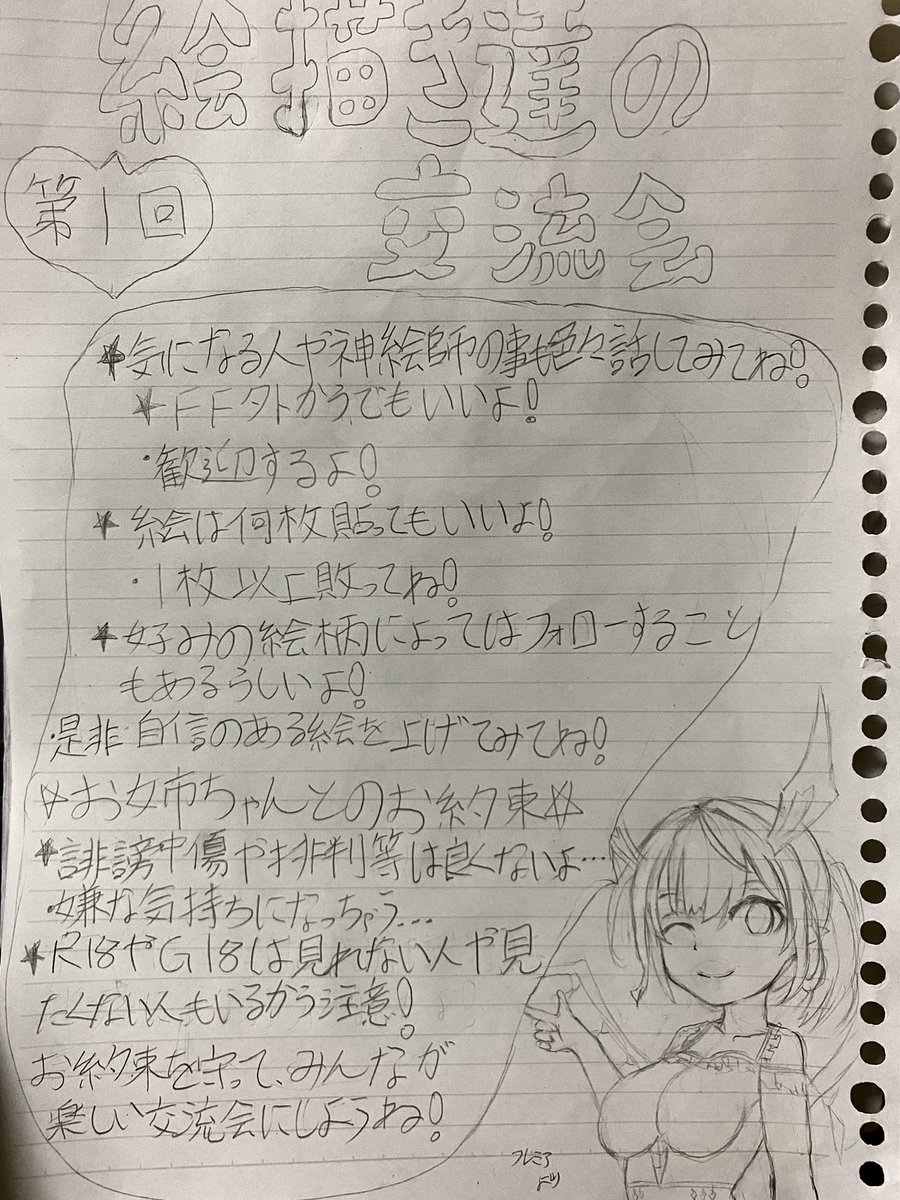 絵描き達の
交流会
第1回
★気になる人や神絵師の事も色々話してみてね!
★FF外からでもいいよ!
・歓迎するよ!
★絵は何枚貼ってもいいよ!
・1枚以上貼ってね!
★好みの絵柄によってはフォローすること
もあるらしいよ!
・是非自信のある絵を上げてみてね!
☆お姉ちゃんとのお約束☆
★誹謗中傷や批判等は良くないよ…
・嫌な気持ちになっちゃう…
★R18やG18は見れない人や見
たくない人もいるから注意!
お約束を守って、みんなが
楽しい交流会にしようね!
フレミア